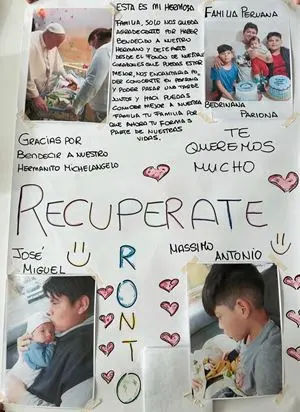 ESTA ES MI HERMOSA
FAMILIA, SOLO NOS QUEDA
AGRADECERTE POR HABER
BENDECIDO A NUESTRO
HERMANO Y DESEARTE
DESDE EL FONDO DE NUESTROS
CORAZONES QUE PUEDAS ESTAR
MEJOR, NOS ENCANTARIA PO-
DER CONOCERTE EN PERSONA
Y PODER PASAR UNA TARDE
JUNTOS Y PUEDAS
CONOCER MEJOR A NUESTRA
FAMILIA TU FAMILIA POR
QUE AHORA TU FORMAS
PARTE DE NUESTRAS
VIDAS.
FAMILIA PERUANA
BEDRIÑANA
PARIONA
GRACIAS POR
BENDECIR A NUESTRO
HERMANITO MICHELANGELO
TE
QUEREMOS
MUCHO
RECUPERATE
PRONTO
JOSÉ
MIGUEL
MASSIMO
ANTONIO